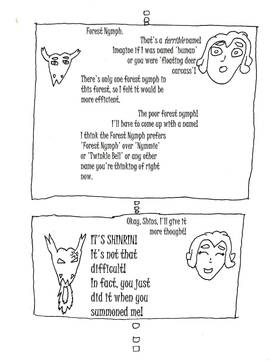 Forest Nymph.
That's a derrible name!
Imagine if I was named "human"
or you were "floating deer
carcass"!
There's only one forest nymph in
this forest, so I felt it would be
more efficient.
The poor forest nymph!
I'll have to come up with a name!
I think the Forest Nymph prefers
"Forest Nymph" over "Nymmie"
or "Twinkle Bell" or any other
name you're thinking of right
now.
Okay, Shins, I'll give it
more thought!
IT'S SHINRIN!
It's not that
difficult!
In fact, you just
did it when you
summoned me!